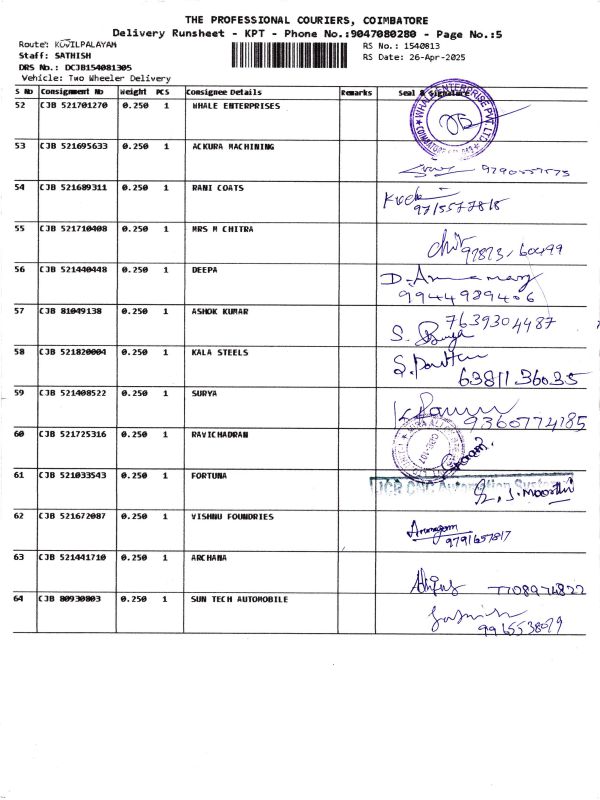 THE PROFESSIONAL COURIERS, COIMBATORE
Delivery Runsheet - KPT - Phone No.:9047080280 - Page No.:5
Route: KOVILPALAYAM RS No.: 1540813
Staff: SATHISH RS Date: 26-Apr-2025
DRS No.: DCJB154081305
Vehicle: Two Wheeler Delivery
S No Consignment No Weight PCS Consignee Details Remarks Seal & Signature
52 CJB 521701270 0.250 1 WHALE ENTERPRISES WHALE ENTERPRISE PVT. LTD
53 CJB 521695633 0.250 1 ACKURA MACHINING
54 CJB 521689311 0.250 1 RANI COATS
9715577818
55 CJB 521710408 0.250 1 MRS M CHITRA
56 CJB 521440448 0.250 1 DEEPA
9944989406
57 CJB 81049138 0.250 1 ASHOK KUMAR 7639304487
58 CJB 521820004 0.250 1 KALA STEELS
6381136035
59 CJB 521408522 0.250 1 SURYA
9360774185
60 CJB 521725316 0.250 1 RAVICHADRAN
61 CJB 521033543 0.250 1 FORTUNA JCR CNC Automation Systems
62 CJB 521672087 0.250 1 VISHNU FOUNDRIES
9791657817
63 CJB 521441710 0.250 1 ARCHANA
7708974822
64 CJB 80930803 0.250 1 SUN TECH AUTOMOBILE
9965538079